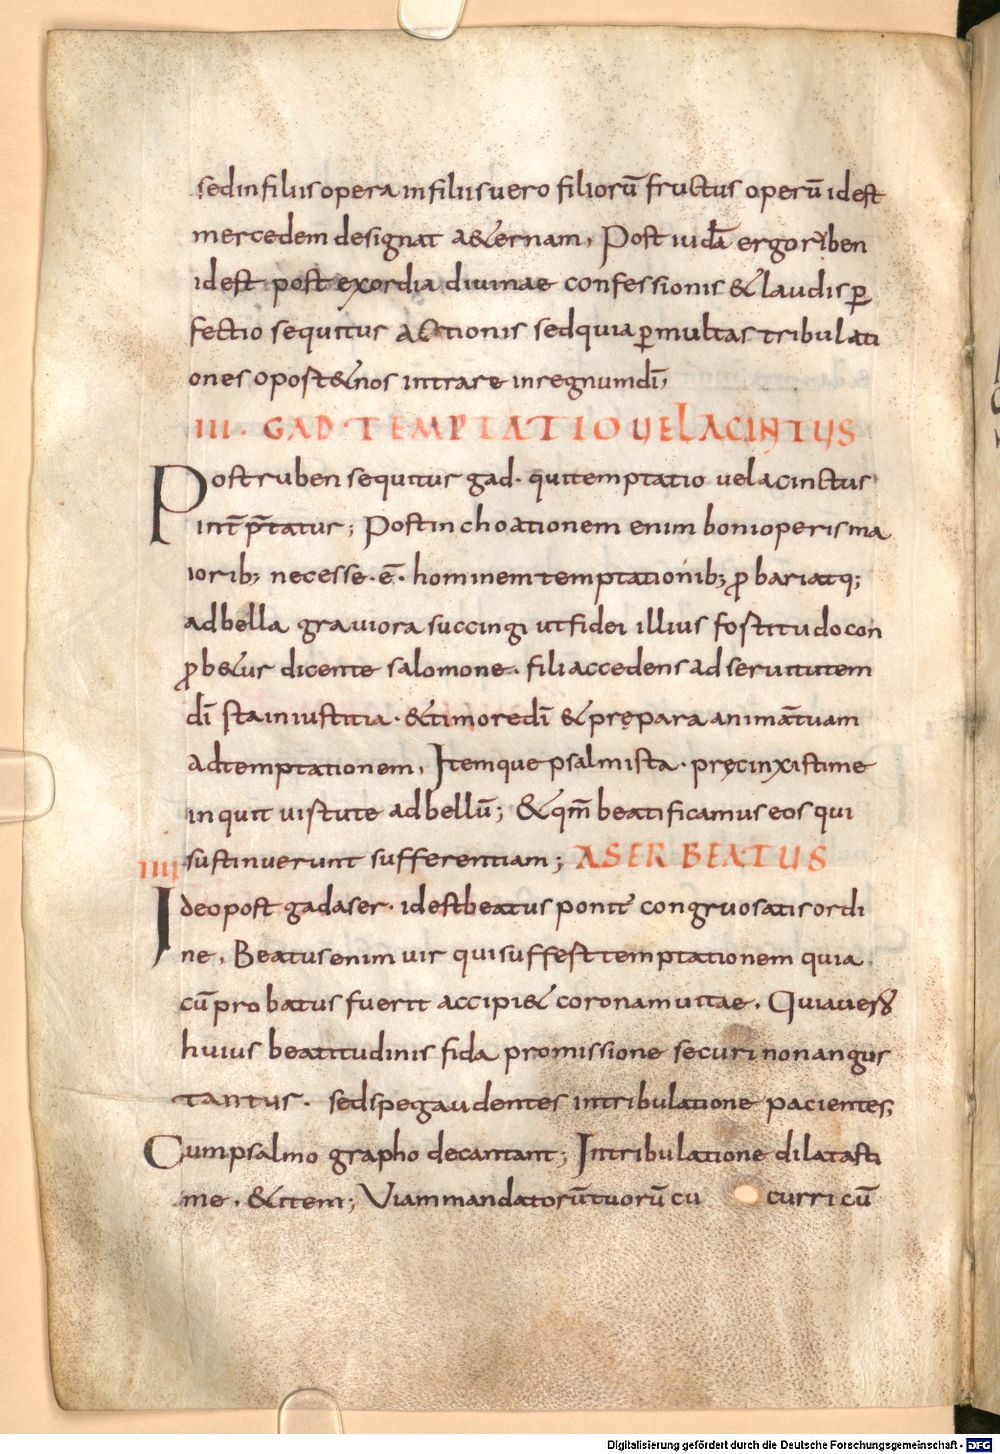 sed in filiis opera in filiis uero filiorū fructus operū id est
mercedem designat a&ernam, Post iudā ergo ruben
id est post exordia diuinae confessionis & laudis ꝑ
fectio sequitur actionis sed quia ꝑ multas tribulati
ones oport& nos intrare in regnum dī,
III · GAD TEMPTATIO UEL ACINTUS
Post ruben sequitur gad · qui temptatio uel acinctus
int̄p̄tatur; Post inchoationem enim boni operis ma
iorib; necesse · ē · hominem temptationib; ꝓbari atq;
ad bella grauiora succingi ut fidei illius fortitudo con
ꝓb&ur dicente salomone · fili accedens ad seruitutem
dī sta in iustitia · & timore dī & prępara animā tuam
ad temptationem, Itemque psalmista · pręcinxisti me
inquit uirtute ad bellū; & qm̄ beatificamus eos qui
sustinuerunt sufferentiam; ASER BEATUS
IIII
Ideo post gad aser · id est beatus ponit̄ congruo satis ordi
ne, Beatus enim uir qui suffert temptationem quia
cū probatus fuerit accipi& coronam uitae · Quia uero
huius beatitudinis fida promissione securi non angus
tantur · sed spe gaudentes in tribulatione pacientes;
Cum psalmographo decantant; In tribulatione dilatasti
me · & item; Viam mandatorū tuorū cu curri cū
Digitalisierung gefördert durch die Deutsche Forschungsgemeinschaft - DFG